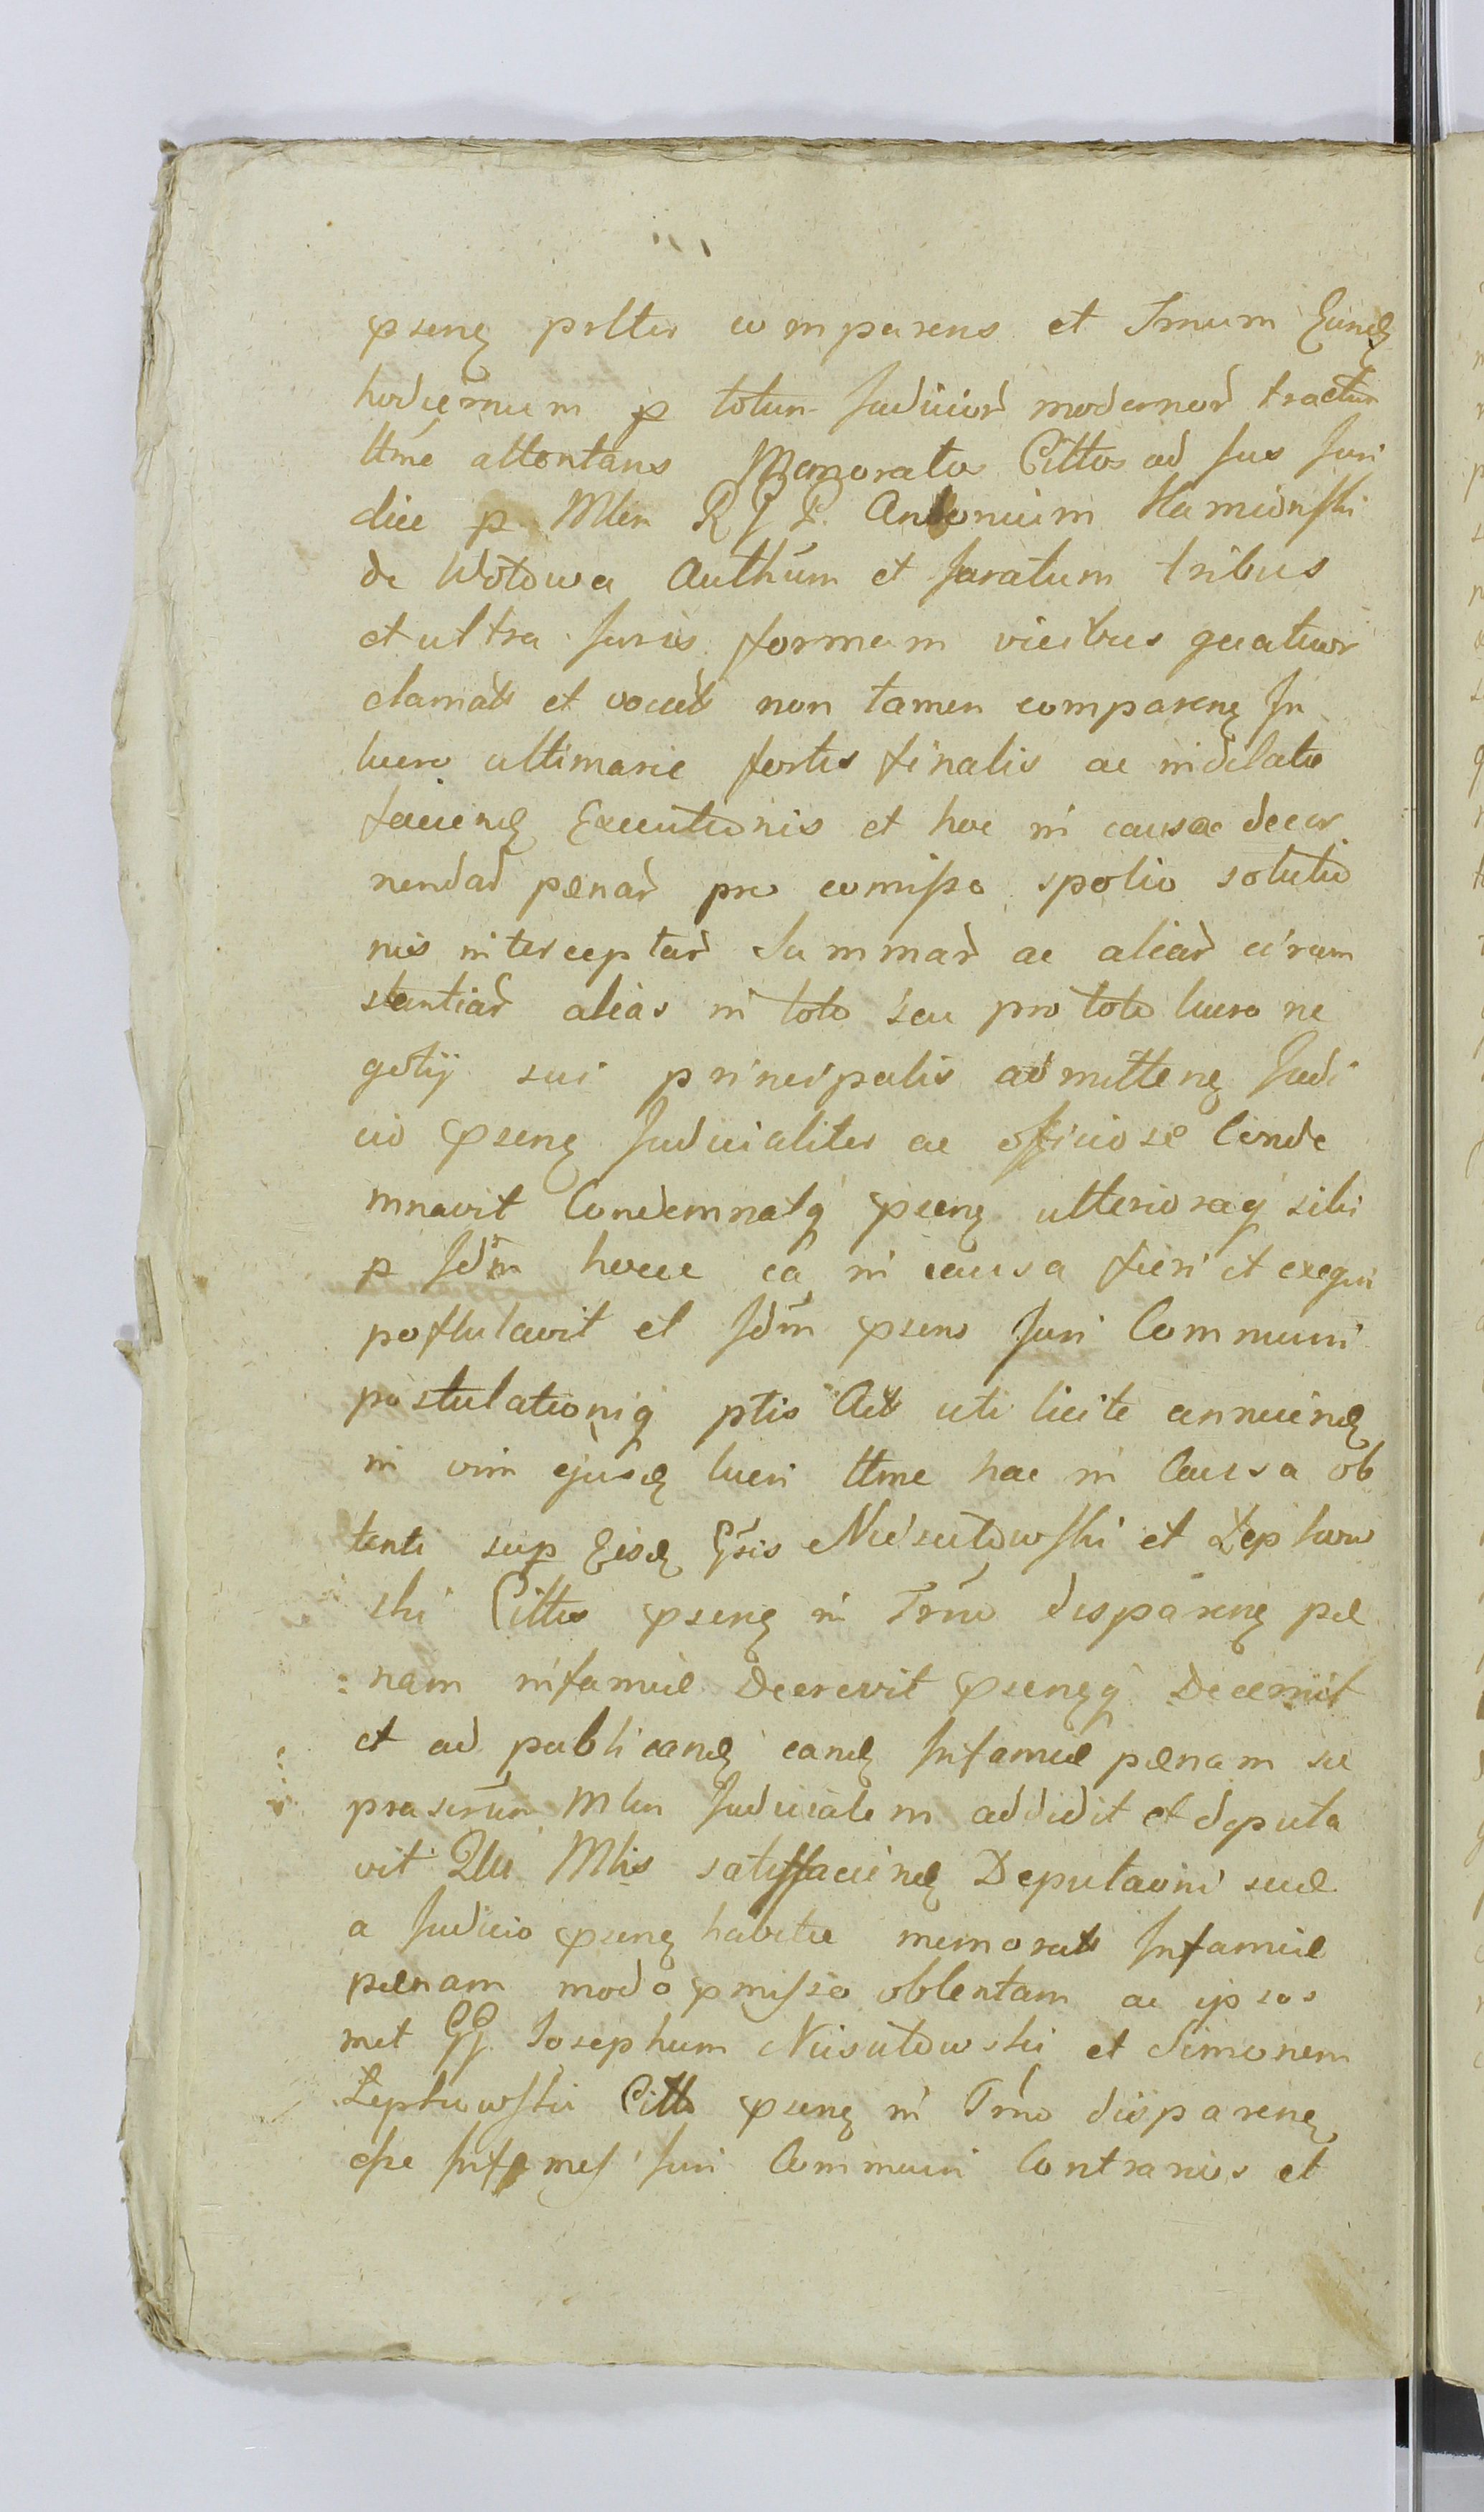 psenę pslter comparens et Trnum Eundę
hodiernum p totum Judicior modernor tractum
ltme attentans Memoratos Cittos ad Jus Juri
dice p Mlem R J P. Antonium Kamieński
de Wołowa Authum et Juratum tribus
et ultra Juris formam vicibus quatuor
clamats et vocats non tamen comparenę In
lucro ultimarie fortis finalis ac indilatæ
faciendę Executionis et hoc in causa decer
nendar pænar pro comisso spolio solutio
nis interceptar Summar ac aliar circum
stantiar alias in toto seu pro toto lucro ne
gotij sui principalis admittenę Judi
cio psenę Judicialiter ac officiose Conde
mnavit Condemnatq psenę ulterioraq sibi
p Jdm hocce ea in causa fieri et exequi
postulavit et Jdm psens Juri Communi
postulationiq ptis Act uti licite annuendę
in vim ejusdę lucri ltme hac in Causa ob
tenti sup Eisdę Gsis Niesułowski et Łepkow
ski Cittis psenę in Trno disparenę pæ
nam infamiæ Decrevit psenęq Decernit
et ad publicandę eandę Infamiæ pænam su
prascrum Mlem Judicialem addidit et deputa
vit Qui Mlis satisfaciendę Deputaoni suæ
a Judicio psenę habitæ memorats Infamiæ
pænam modo pmisso obtentam ac ipsos
met GG. Josephum Niesułowski et Simonem
Łepkowski Citts psenę in Trno disparenę
esse Infames Juri Communi Contrarios et